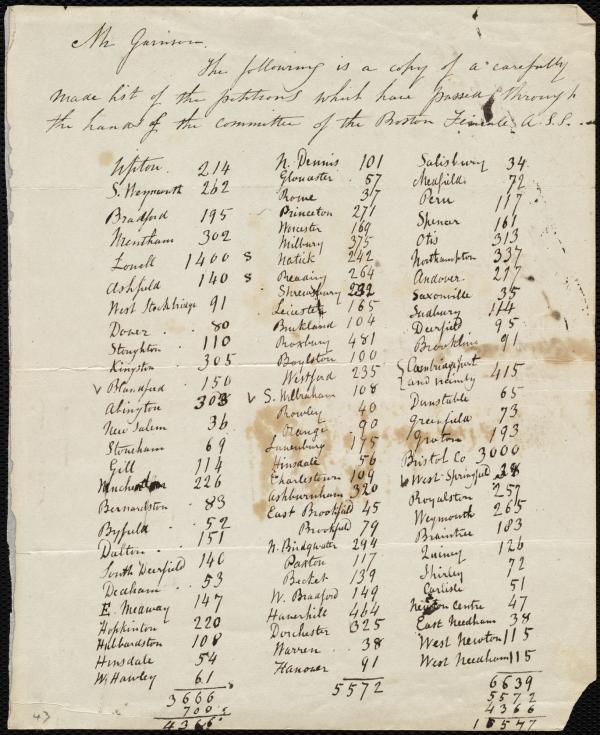 Mr Garrison.
The following is a copy of a carefully
made list of the petitions which have passed through
the hands of the committee of the Boston Female A.S.S.
Upton. 214
S. Weymouth 262
Bradford 195
Mentham 302
Lowell 1400 s
Ashfield 140 s
West Stockbridge 91
Dover . . 80
Stoughton . 110
Kingston . 305
v Blandford . 150
Abington 303
New Salem 36
Stoneham 69
Gill 114
Winchendon 226
Bernardston . 83
Byfield . . 52
Dalton . . 151
South Deerfield 140
Deaham . . 53
E. Medway 147
Hopkinton 220
Hubbardston 108
Hinsdale 54
W. Hawley 61
3666 s
700 s
4366
N. Dennis 101
Gloucester . 57
Rowe 37
Princeton 271
Worcester 169
Milbury 375
Natick 242
Reading 264
Shrewsbury 232
Leicester 165
Buckland 104
Roxbury 481
Boylston 100
Westford 235
v S. Wilbraham 108
Rowley 40
Orange 90
Lunenburg 175
Hinsdale 56
Charlestown 109
Ashburnham 320
East Brookfield 45
Brookfield 79
N. Bridgwater 294
Paxton 117
Becket 139
W. Bradford 149
Haverhill 464
Dorchester 325
Warren . . 38
Hanover 91
5572
Salisbury 34
Medfield 72
Peru 117
Spencer 161
Otis 313
Northampton 337
Andover 227
Saxonville 35
Sudbury 114
Deerfield 95
Brookline 91
Cambridgeport
and vicinity 415
Dunstable 65
Greenfield 73
Groton 193
Bristol Co 3000
v West Springfield 28
Royalston 257
Weymouth 265
Braintree 183
Quincy 126
Shirley 72
Carlisle 51
Newton Centre 47
East Needham 38
West Newton 115
West Needham 115
6639
5572
4366
16577
43